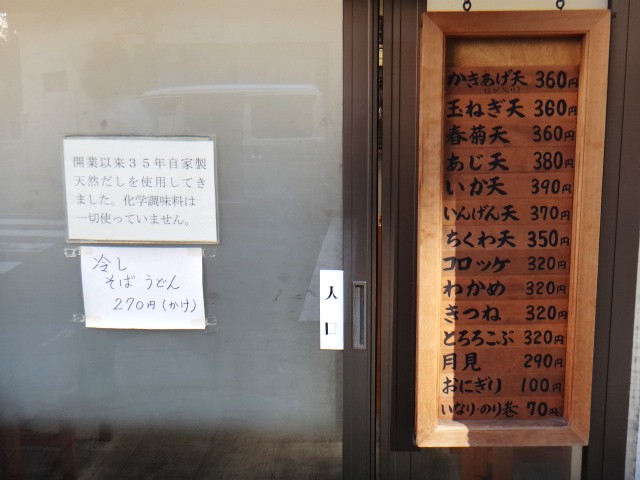 開業以来35年自家製
天然だしを使用してき
ました。化学調味料は
一切使っていません。
冷し
そば うどん
270円(かけ)
入口
かきあげ天 360円
玉ねぎ天 360円
春菊天 360円
あじ天 380円
いか天 390円
いんげん天 370円
ちくわ天 350円
コロッケ 320円
わかめ 320円
きつね 320円
とろろこぶ 320円
月見 290円
おにぎり 100円
いなり・のり巻 70円